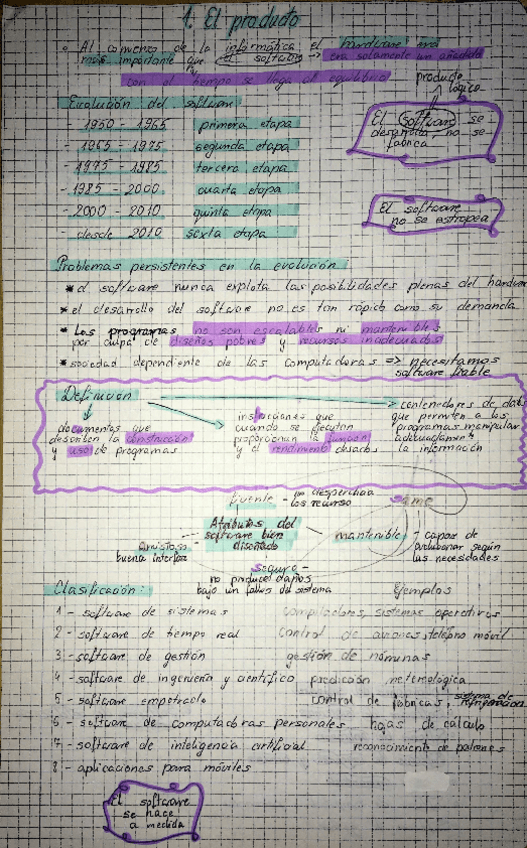 1. El producto
• Al comienzo de la informática el hardware era
más importante que el software → era solamente un añadido
con el tiempo se llega al equilibrio
producto
lógico
El software se
desarrolla, no se
fabrica
Evolución del software
- 1950 - 1965 primera etapa
- 1965 - 1975 segunda etapa
- 1975 - 1985 tercera etapa
- 1985 - 2000 cuarta etapa
- 2000 - 2010 quinta etapa
- desde 2010 sexta etapa
El software
no se estropea
Problemas persistentes en la evolución
* el software nunca explota las posibilidades plenas del hardware
* el desarrollo del software no es tan rápido como su demanda
* Los programas no son escalables ni mantenibles
por culpa de diseños pobres y recursos inadecuados
* sociedad dependiente de las computadoras => necesitamos
software fiable
Definición
documentos que
describen la construcción
y uso de programas
instrucciones que
cuando se ejecutan
proporcionan la función
y el rendimiento deseados
contenedores de datos
que permiten a los
programas manipular
adecuadamente
la información
- no desperdicia
los recursos
Atributos del
software bien
diseñado
amistoso -
buena interfaz
mantenible
- capaz de
evolucionar según
las necesidades
seguro -
no produce daños
bajo un fallos del sistema
Clasificación: Ejemplos
1 - software de sistemas compiladores, sistemas operativos
2 - software de tiempo real control de aviones, teléfono móvil
3 - software de gestión gestión de nóminas
4 - software de ingeniería y científico predicción meteorológica
5 - software empotrado control de fábricas, sistema de refrigeración
6 - software de computadoras personales hojas de cálculo
7 - software de inteligencia artificial reconocimiento de patrones
8 - aplicaciones para móviles
El software
se hace
a medida